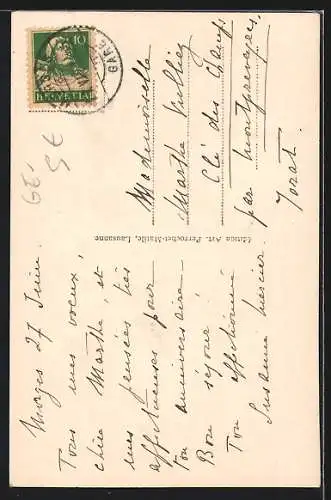 Morges 27 Juin.
Tous mes voeux,
chère Marthe et
mes pensées très
affectueuses pour
ton anniversaire.
Bon séjour!
Ton affectionnée
Susanne
Edition Art. Perrochet-Matile, Lausanne
Mademoiselle
Marthe
Clé des Champs
par Montpreveyres.
Jorat.
10
HELVETIA
GARE
GE'
5€